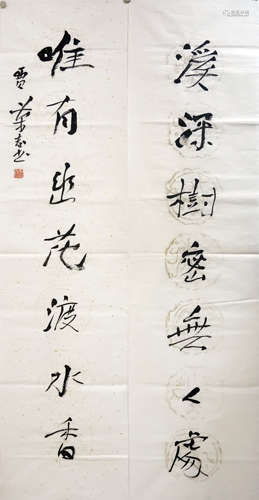 溪深樹密無人處
唯有幽花渡水香